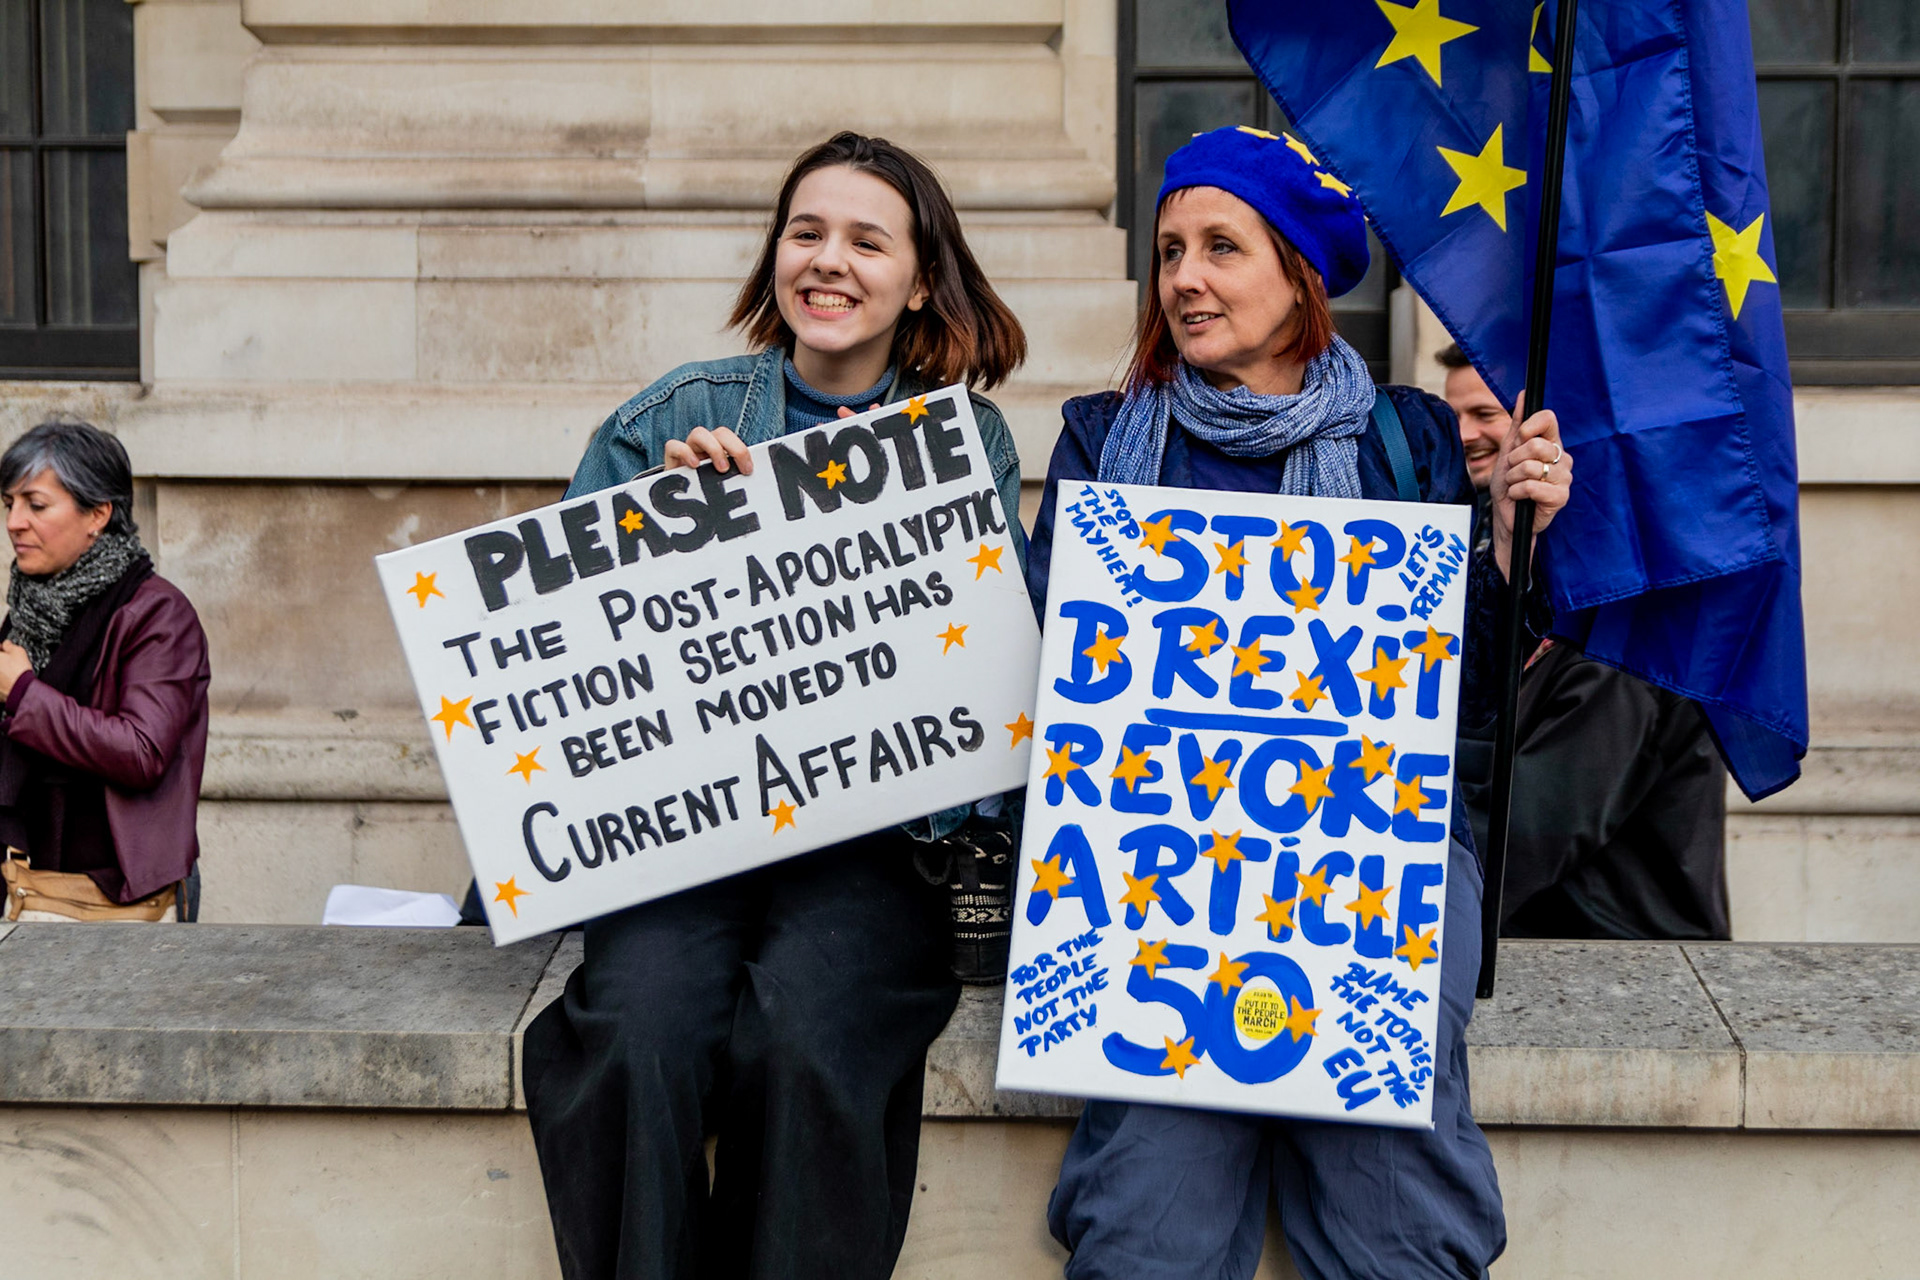 PLEASE NOTE
THE POST-APOCALYPTIC
FICTION SECTION HAS
BEEN MOVED TO
CURRENT AFFAIRS
STOP
THE
MAYHEM!
LET'S
REMAIN
STOP
BREXIT
REVOKE
ARTICLE
50
FOR THE
PEOPLE
NOT THE
PARTY
PUT IT TO
THE PEOPLE
MARCH
BLAME
THE TORIES,
NOT THE
EU